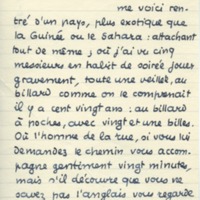 me voici ren-
tré d'un pays, plus exotique que
la Guinée ou le Sahara : attachant
tout de même ; où j'ai vu cinq
messieurs en habit de soirée jouer
gravement, toute une veillée, au
billard comme on le comprenait
il y a cent vingt ans : au billard
à poches, avec vingt et une billes.
Où l'homme de la rue, si vous lui
demandez le chemin vous accom-
pagne gentiment vingt minutes,
mais s'il découvre que vous ne
savez pas l'anglais vous regarde